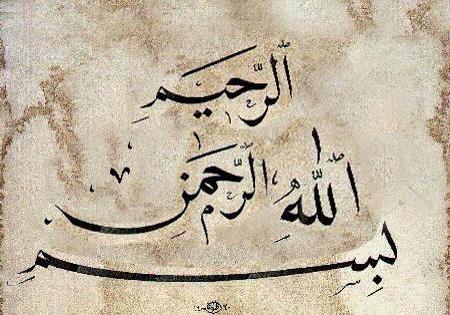 بِسْمِ
اللهِ الرَّحْمٰنِ
الرَّحِيمِ